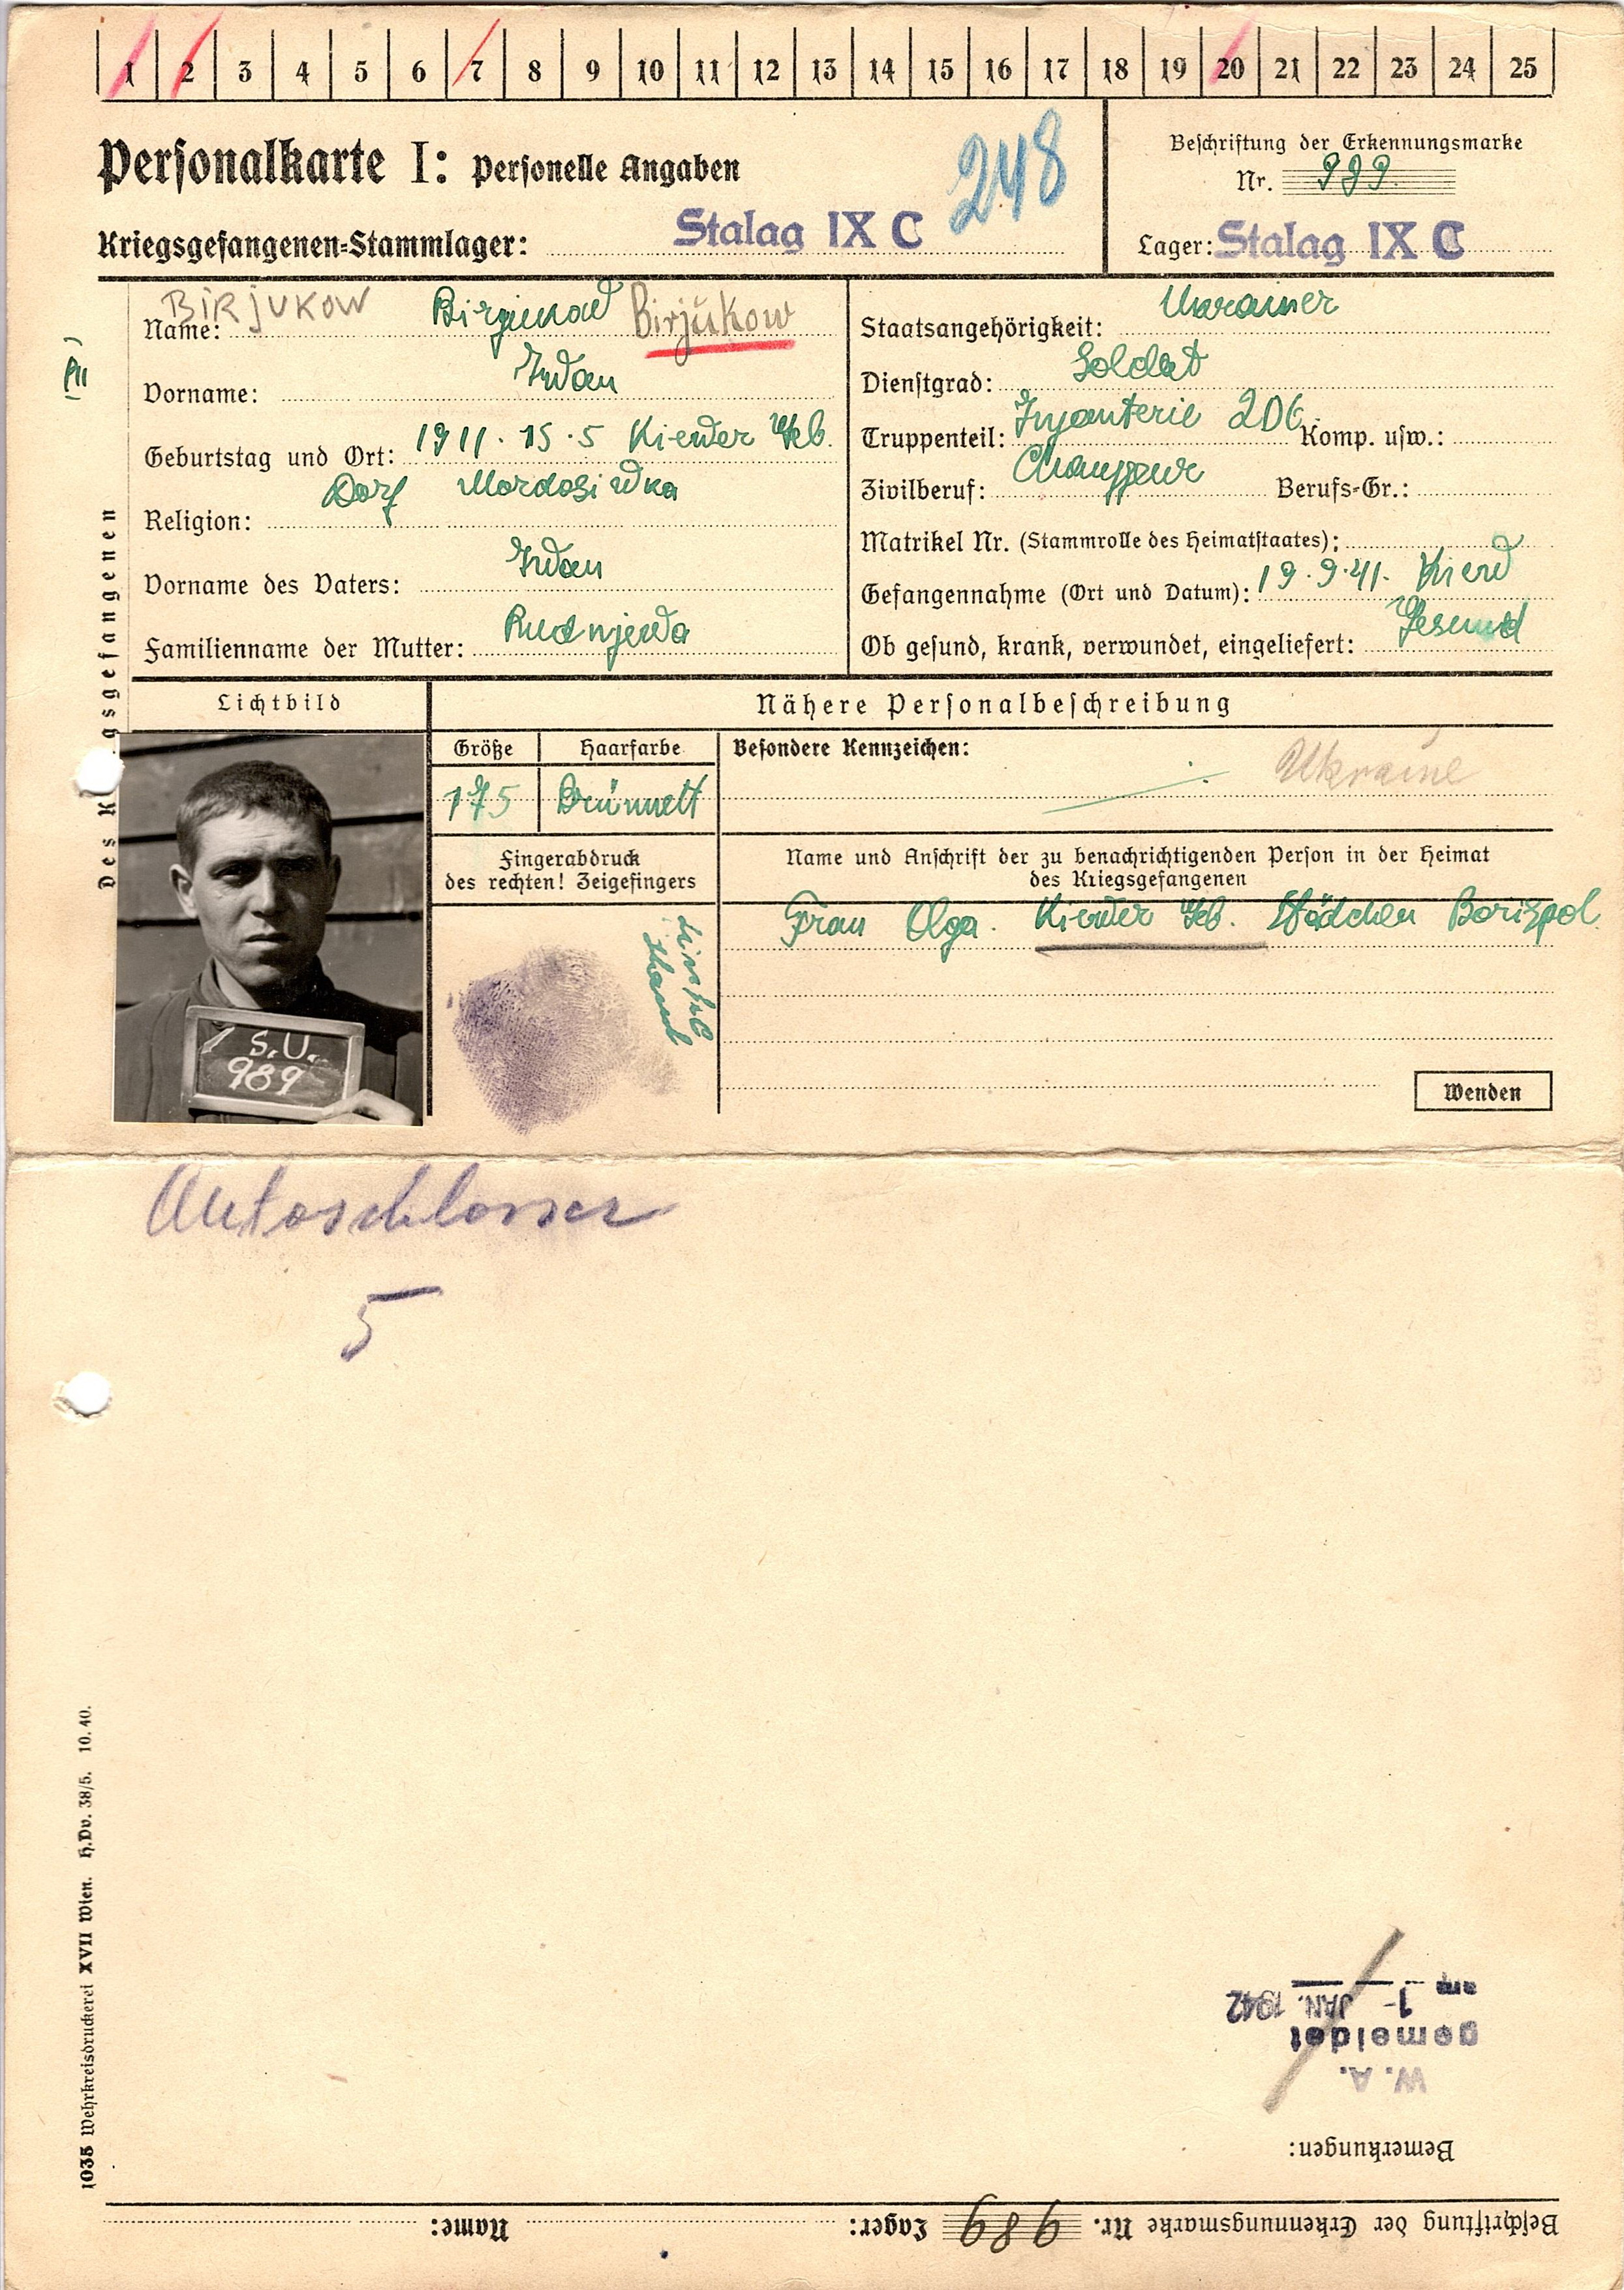 1 2 3 4 5 6 7 8 9 10 11 12 13 14 15 16 17 18 19 20 21 22 23 24 25
Personalkarte I: Personelle Angaben
248
Beschriftung der Erkennungsmarke
Nr. 989.
Kriegsgefangenen=Stammlager: Stalag IX C
Lager: Stalag IX C
BIRJUKOW
Name: Birjukow Birjukow
Vorname: Iwan
Geburtstag und Ort: 1911. 15. 5 Kiewer Geb.
Dorf
Religion:
Vorname des Vaters: Iwan
Familienname der Mutter: Rudnjewa
Des K gsgefangenen
Staatsangehörigkeit: Ukrainer
Dienstgrad: Soldat
Truppenteil: Infanterie 206. Komp. usw.:
Zivilberuf: Chauffeur Berufs=Gr.:
Matrikel Nr. (Stammrolle des Heimatstaates):
Gefangennahme (Ort und Datum): 19. 9. 41. Kiew
Ob gesund, krank, verwundet, eingeliefert: Gesund
Lichtbild
Nähere Personalbeschreibung
Größe Haarfarbe
175 Brünnett
Besondere Kennzeichen:
Ukraine
Fingerabdruck
des rechten! Zeigefingers
Name und Anschrift der zu benachrichtigenden Person in der Heimat
des Kriegsgefangenen
Frau Olga. Kiewer Geb. Städchen Borispol.
S.U.
989
Wenden
Autoschlosser
5
1035 Wehrkreisdruckerei XVII Wien. H.Dv. 38/5. 10. 40.
Beschriftung der Erkennungsmarke Nr. 989 Lager: Name:
Bemerkungen:
W. A.
gemeldet
am 1- JAN. 1942